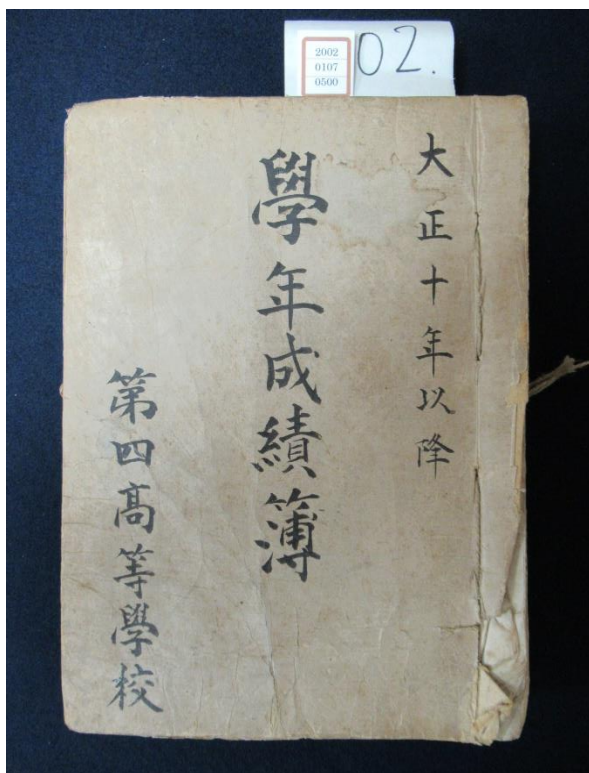 2002
0107
0500
02.
大正十年以降
學年成績簿
第四髙等學校